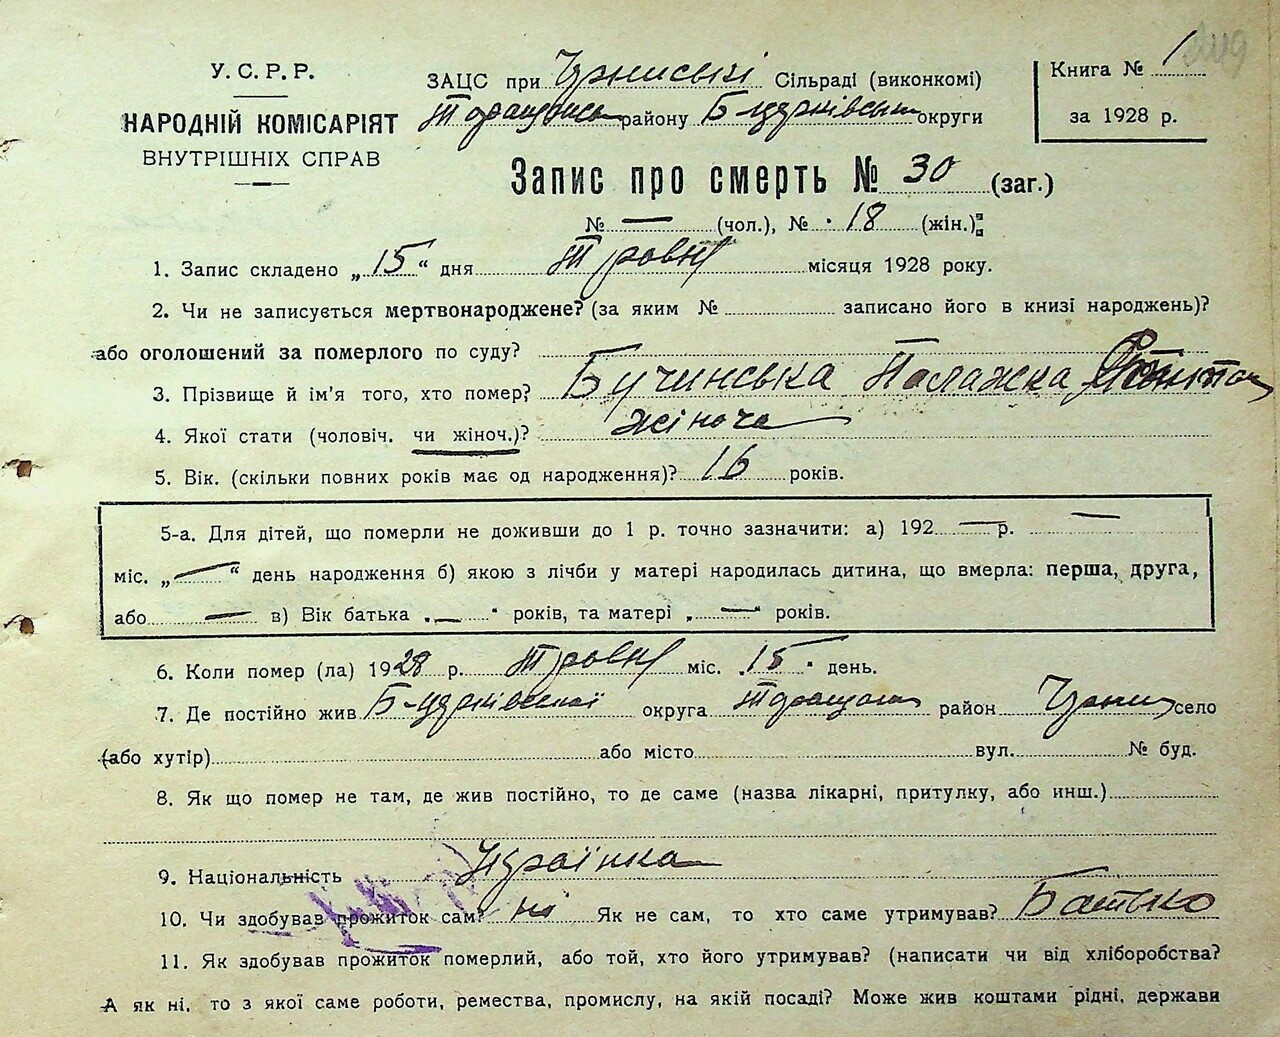 У. С. Р. Р.
НАРОДНІЙ КОМІСАРІЯТ
ВНУТРІШНІХ СПРАВ
ЗАЦС при Сільраді (виконкомі)
району Б-церківської округи
Книга № 1
за 1928 р.
Запис про смерть № 30 (заг.)
№ — (чол.), № 18 (жін.)
1. Запис складено „15“ дня Травня місяця 1928 року.
2. Чи не записується мертвонароджене? (за яким № записано його в книзі народжень)?
або оголошений за померлого по суду?
3. Прізвище й ім'я того, хто помер? Бучинська Палажка
4. Якої стати (чоловіч. чи жіноч.)? жіноча
5. Вік. (скільки повних років має од народження)? 16 років.
5-а. Для дітей, що померли не доживши до 1 р. точно зазначити: а) 192 — р. —
міс. „—“ день народження б) якою з лічби у матері народилась дитина, що вмерла: перша, друга,
або — в) Вік батька „—“ років, та матері „—“ років.
6. Коли помер (ла) 1928 р. Травня міс. „15“ день.
7. Де постійно жив Б-церківської округа район село
(або хутір) або місто вул. № буд.
8. Як що помер не там, де жив постійно, то де саме (назва лікарні, притулку, або инш.)
9. Національність Українка
10. Чи здобував прожиток сам? ні Як не сам, то хто саме утримував? Батько
11. Як здобував прожиток померлий, або той, хто його утримував? (написати чи від хліборобства?
А як ні, то з якої саме роботи, ремества, промислу, на якій посаді? Може жив коштами рідні, держави